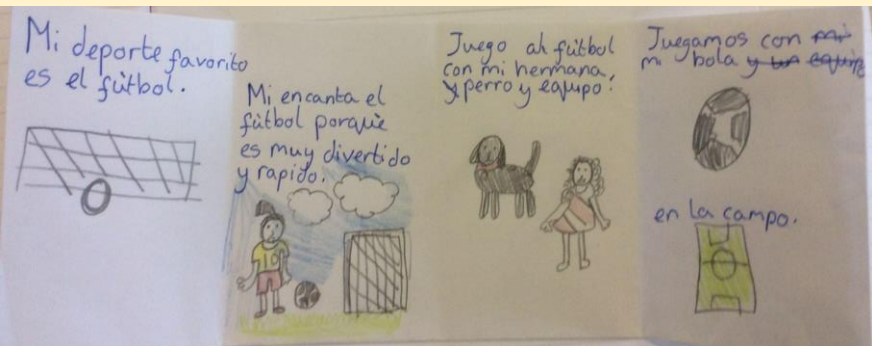 Mi deporte favorito
es el fùtbol.
Mi encanta el
fùtbol porque
es muy divertido
y rapido.
Juego ah fútbol
con mi hermana,
y perro y equipo.
Juegamos con mi
mi bola y un equipo
en la campo.